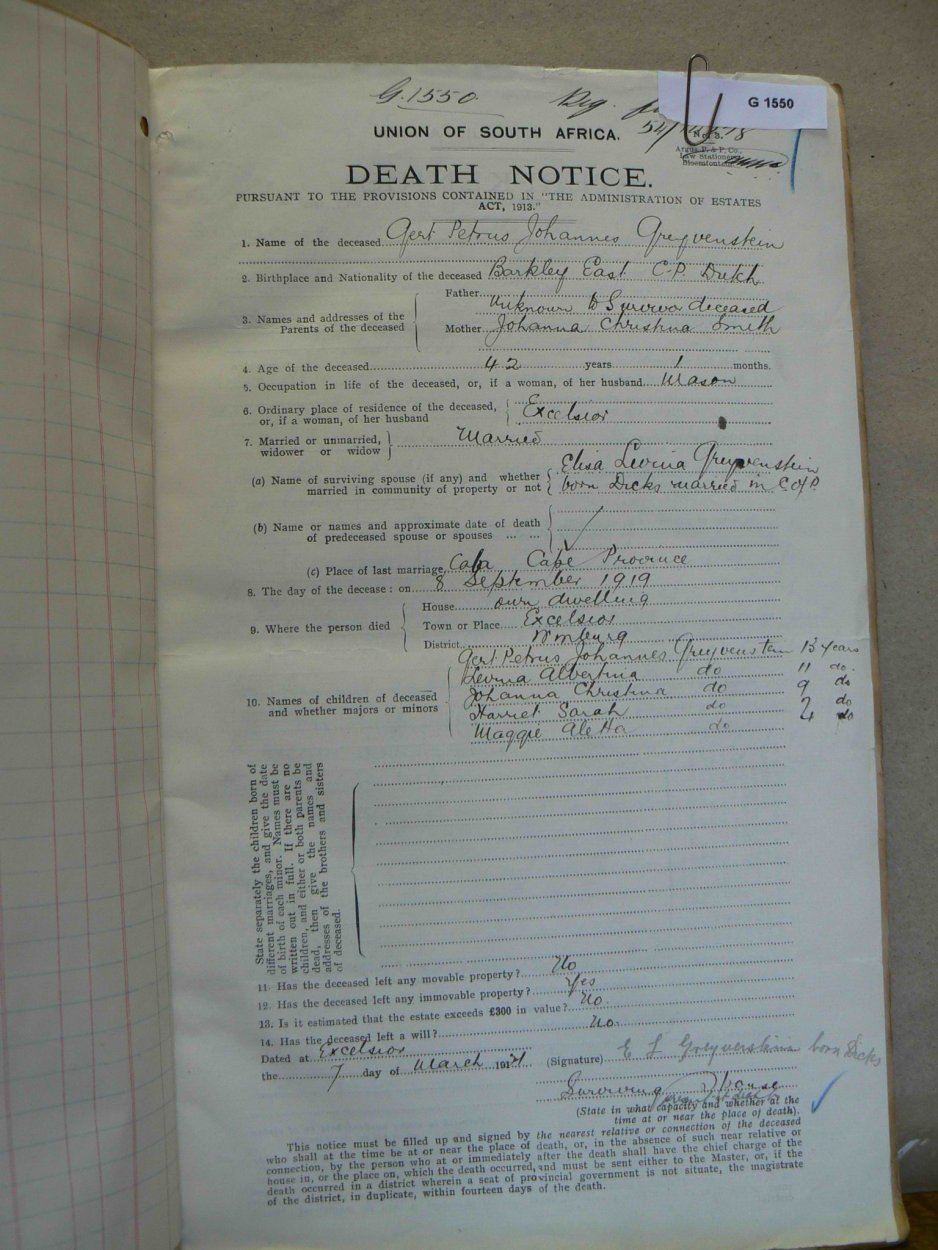 G.1550.
Reg.
G 1550
UNION OF SOUTH AFRICA.
54/
No. 3.
Argus P. & P. Co.,
Law Stationers
Bloemfontein
DEATH NOTICE.
PURSUANT TO THE PROVISIONS CONTAINED IN "THE ADMINISTRATION OF ESTATES
ACT, 1913."
1. Name of the deceased Gert Petrus Johannes Greyvenstein
2. Birthplace and Nationality of the deceased Barkley East C.P. Dutch
3. Names and addresses of the Parents of the deceased
Father Unknown to Survivor deceased
Mother Johanna Christina Smith
4. Age of the deceased 42 years 1 months.
5. Occupation in life of the deceased, or, if a woman, of her husband Mason
6. Ordinary place of residence of the deceased,
or, if a woman, of her husband Excelsior
7. Married or unmarried,
widower or widow Married
(a) Name of surviving spouse (if any) and whether
married in community of property or not
Elisa Levina Greyvenstein
born Dicks married in C of P.
(b) Name or names and approximate date of death
of predeceased spouse or spouses ... ...
(c) Place of last marriage Cala Cape Province
8. The day of the decease: on 8 September 1919
9. Where the person died
House own dwelling
Town or Place Excelsior
District Winburg
10. Names of children of deceased
and whether majors or minors
Gert Petrus Johannes Greyvenstein 13 years
Levina Albertina do 11 do.
Johanna Christina do 9 do
Harriet Sarah do 7 do
Maggie Aletta do 4 do
State separately the children born of
different marriages, and give the date
of birth of each minor. Names must be
written out in full. If there are no
children, and either or both parents be
dead, then give the names and
addresses of the brothers and sisters
of deceased.
11. Has the deceased left any movable property? No
12. Has the deceased left any immovable property? Yes
13. Is it estimated that the estate exceeds £300 in value? No.
14. Has the deceased left a will? No.
Dated at Excelsior
the 7 day of March 191
(Signature) E L Greyvenstein born Dicks
Surviving Spouse
(State in what capacity and whether at the
time at or near the place of death).
This notice must be filled up and signed by the nearest relative or connection of the deceased
who shall at the time be at or near the place of death, or, in the absence of such near relative or
connection, by the person who at or immediately after the death shall have the chief charge of the
house in, or the place on, which the death occurred, and must be sent either to the Master, or, if the
death occurred in a district wherein a seat of provincial government is not situate, the magistrate
of the district, in duplicate, within fourteen days of the death.